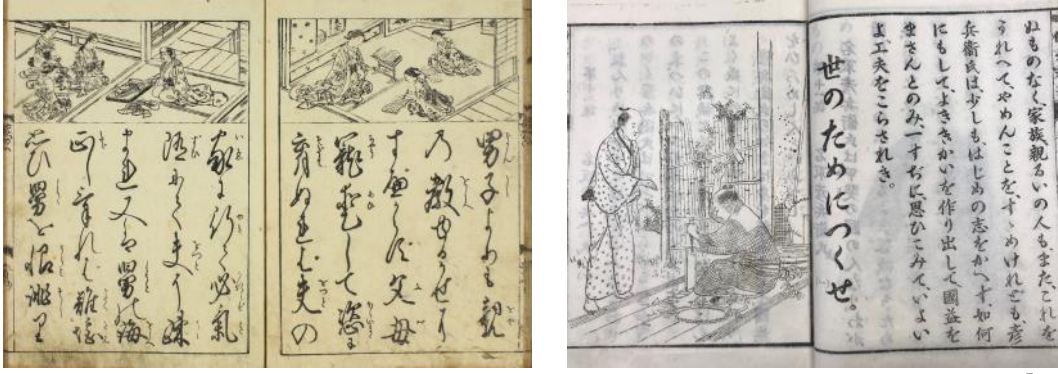 男子よりも親
乃教ゆるがせに
すべからず父母
寵愛して恣に
育ぬれば夫の
家に行て必氣
随にて夫に疎
まれ又は舅の誨
正しければ難堪
思ひ舅を恨誹り
ぬものなく家族親るいの人もまたこれを
うれへて、やめんことを、すゝめけれども、彦
兵衞氏は、少しも、はじめの志をかへず、如何
にもして、よききかいを作り出して、國益を
まさんとのみ、一すぢに思ひこみて、いよい
よ工夫をこらされき。
世のためにつくせ。